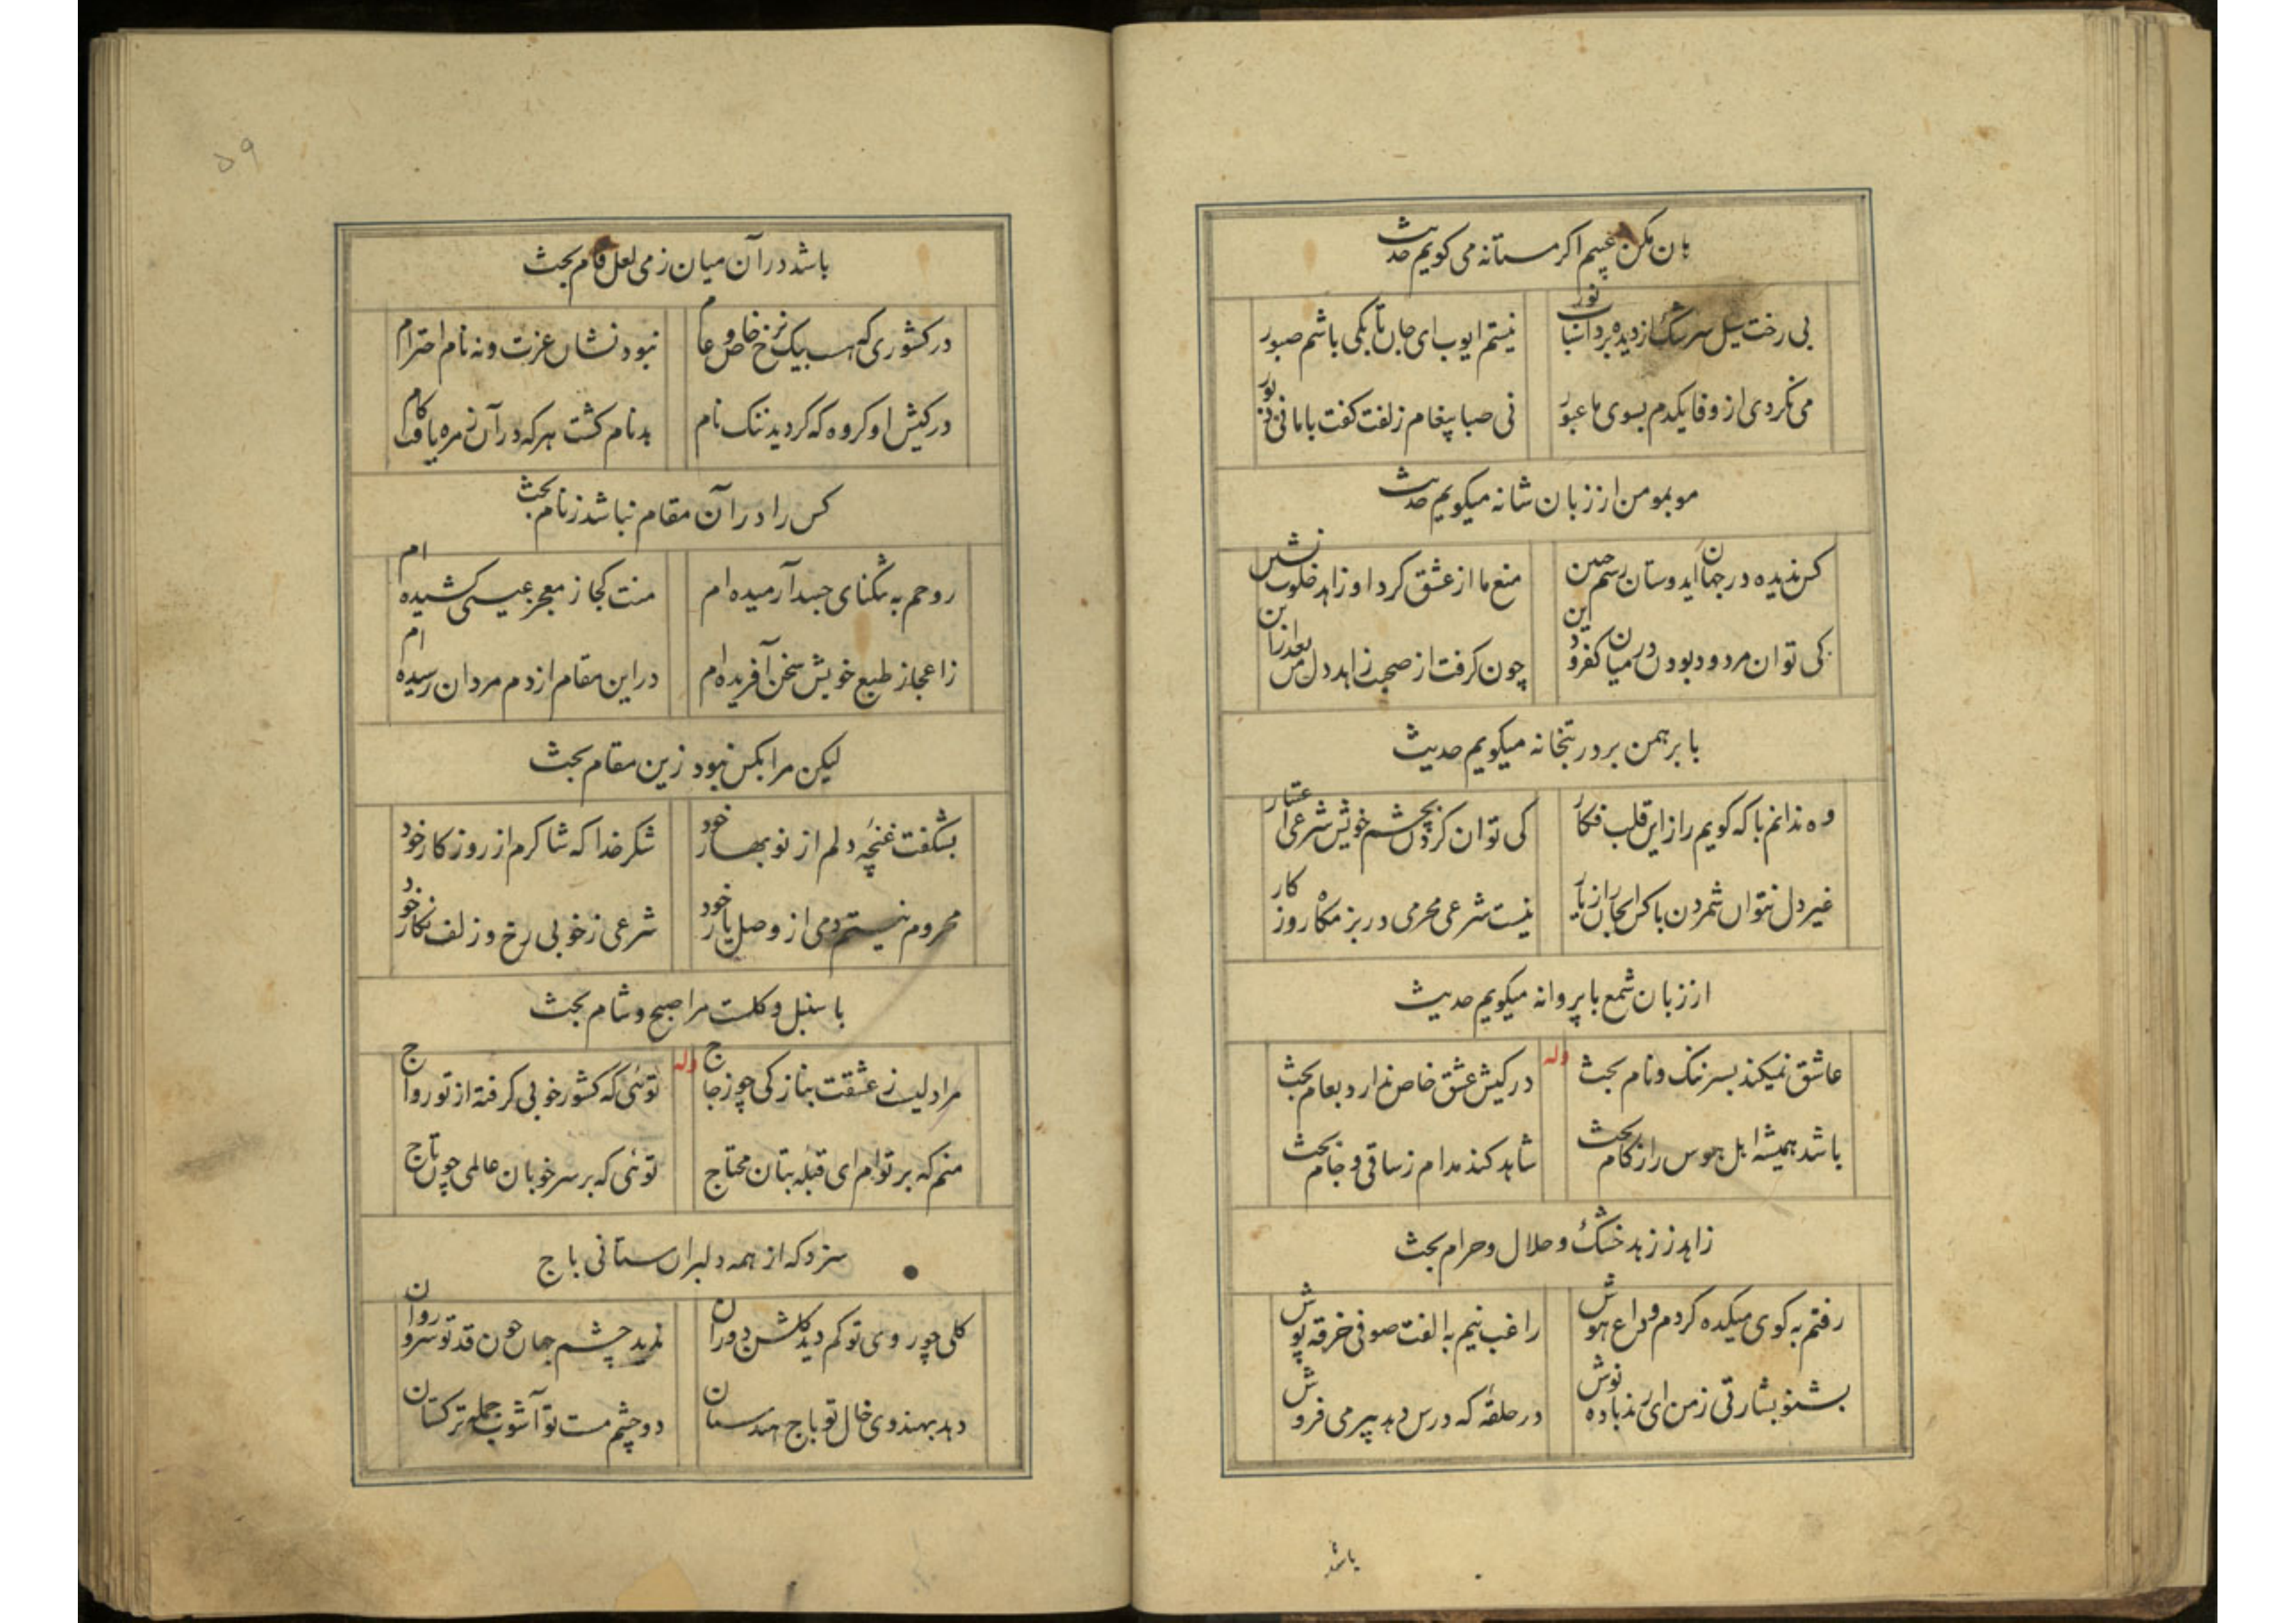 هان مکن عیبم اکر مستانه می کویم حدیث
بی رخت سیل سرشک از دیده برد آنسان نور
نیستم ایوب ای جان تا بکی باشم صبور
می نکردی از وفا یکدم بسوی ما عبور
نی صبا پیغام زلفت کفت باما نی
موبمو من از زبان شانه میکویم حدیث
کس ندیده در جهان ایدوستان رسم چنین
منع ما از عشق کرد او زاهد خلوت نشین
کی توان مردود بودن در میان کفر و دین
چون کرفت از صحبت زاهد دل من بعد ازین
با برهمن بر در بتخانه میکویم حدیث
وه ندانم با که کویم راز این قلب فکار
کی توان کردن بچشم خویش شرعی اعتبار
غیر دل نتوان شمردن با کس ایجان راز یار
نیست شرعی محرمی در بزمکاه روزکار
از زبان شمع با پروانه میکویم حدیث
عاشق نمیکند بسر ننک و نام بحث
وله
در کیش عشق خاص ندارد بعام بحث
باشد همیشه اهل هوس را ز کام بحث
شاهد کند مدام ز ساقی و جام بحث
زاهد ز زهد خشک و حلال و حرام بحث
رفتم به کوی میکده کردم وداع هوش
راغب نیم به الفت صوفی خرقه پوش
بشنو بشارتی ز من ای رند باده نوش
در حلقهٔ که درس دهد پیر می فروش
باشد
۵۹
باشد در آن میان ز می لعل فام بحث
در کشوری که هست بیک نرخ خاص و عام
نبود نشان عزت و نه نام احترام
در کیش او کروه که کردید ننک نام
بدنام کشت هرکه در آن زمره یافت کام
کس را در آن مقام نباشد ز نام بحث
روحم به تنکنای جسد آرمیده ام
منت کجا ز معجز عیسی کشیده ام
ز اعجاز طبع خویش سخن آفریده ام
در این مقام از دم مردان رسیده ام
لیکن مرا بکس نبود زین مقام بحث
بشکفت غنچهٔ دلم از نوبهار خود
شکر خدا که شاکرم از روزکار خود
محروم نیستم دمی از وصل یار خود
شرعی ز خوبی رخ و زلف نکار خود
با سنبل و کلست مرا صبح و شام بحث
مرا دلیست ز عشقت بنازکی چو زجاج
وله
توئی که کشور خوبی کرفته از تو رواج
منم که بر توام ای قبله بتان محتاج
توئی که بر سر خوبان عالمی چون تاج
سزد که از همه دلبران ستانی باج
کلی چو روی تو کم دید کلشن دوران
ندید چشم جهان چون قد تو سرو روان
دهد بهندوی خال تو باج هندستان
دو چشم مست تو آشوب جمله ترکستان